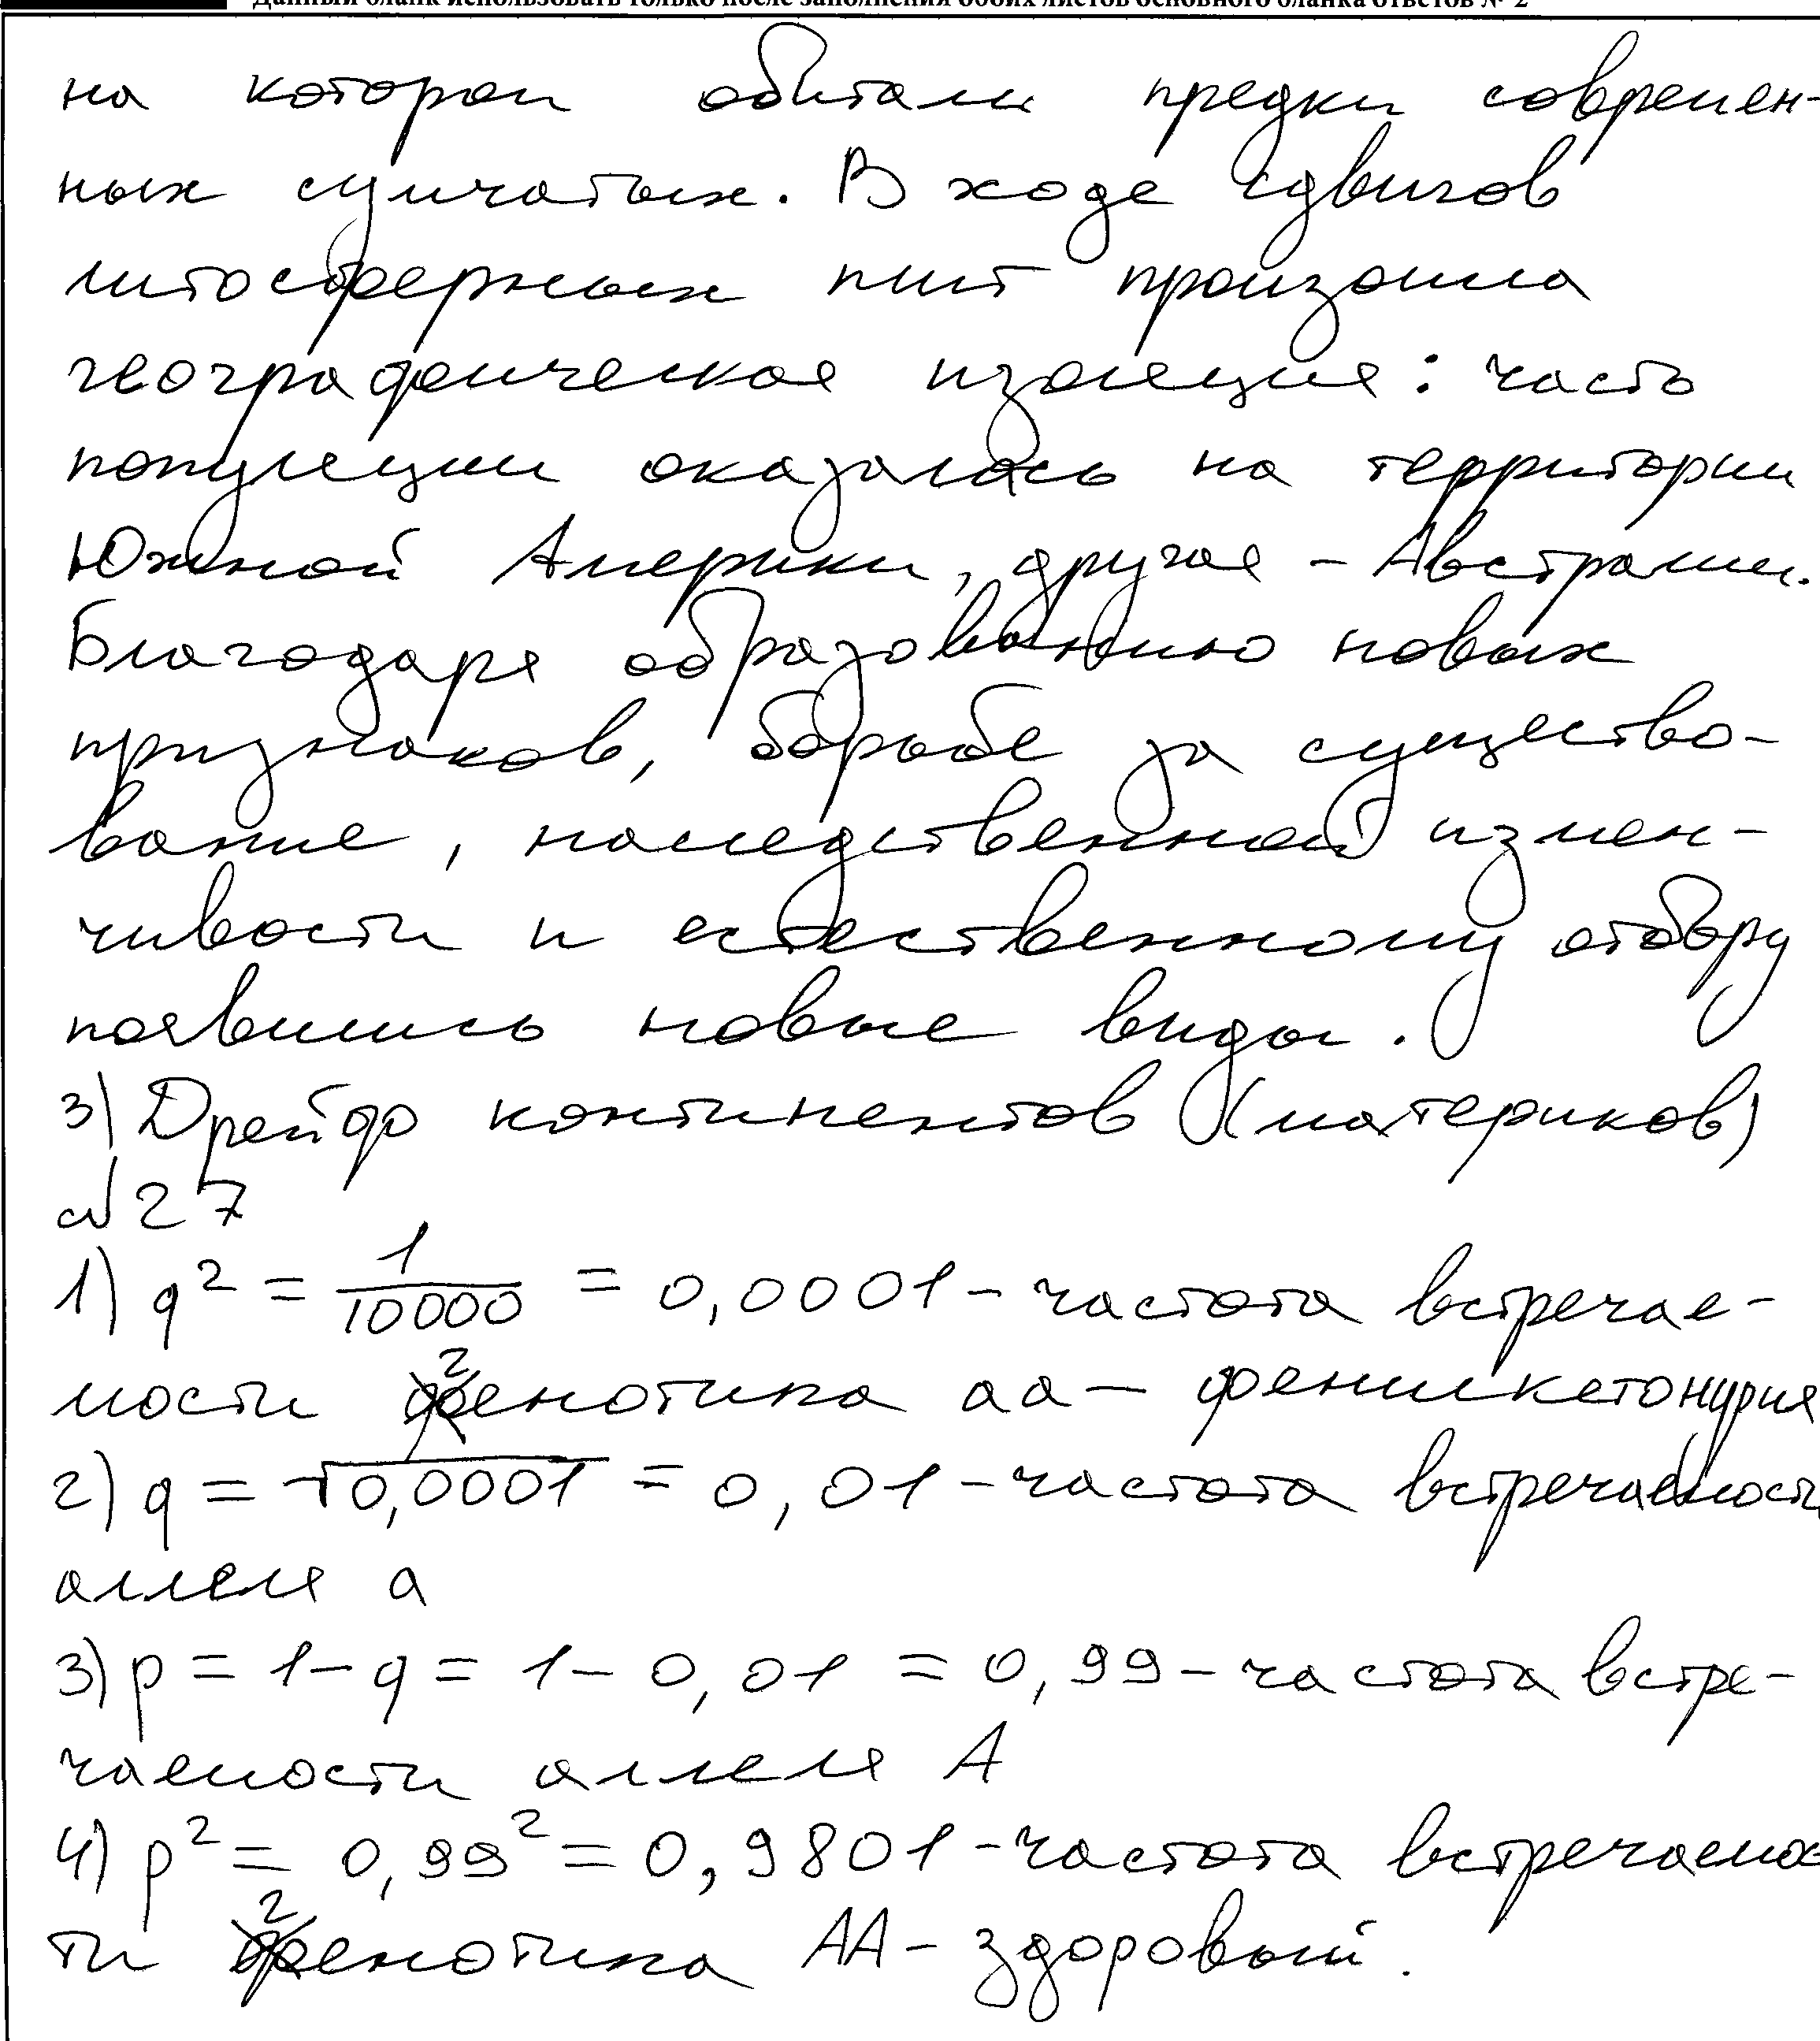 Данный бланк использовать только после заполнения обоих листов основного бланка ответов № 2
на котором обитали предки современ-
ных сумчатых. В ходе сдвигов
литосферных плит произошла
географическая изоляция: часть
популяции оказалась на территории
Южной Америки, другая – Австралии.
Благодаря образованию новых
признаков, борьбе за существо-
вание, наследственной измен-
чивости и естественному отбору
появились новые виды.
3) Дрейф континентов (материков)
№27
1) q² = 1/10000 = 0,0001 – частота встречае-
мости генотипа aa – фенилкетонурия
2) q = √0,0001 = 0,01 – частота встречаемости
аллеля a
3) p = 1 – q = 1 – 0,01 = 0,99 – частота встре-
чаемости аллеля A
4) p² = 0,99² = 0,9801 – частота встречаемос
ти генотипа AA – здоровый.